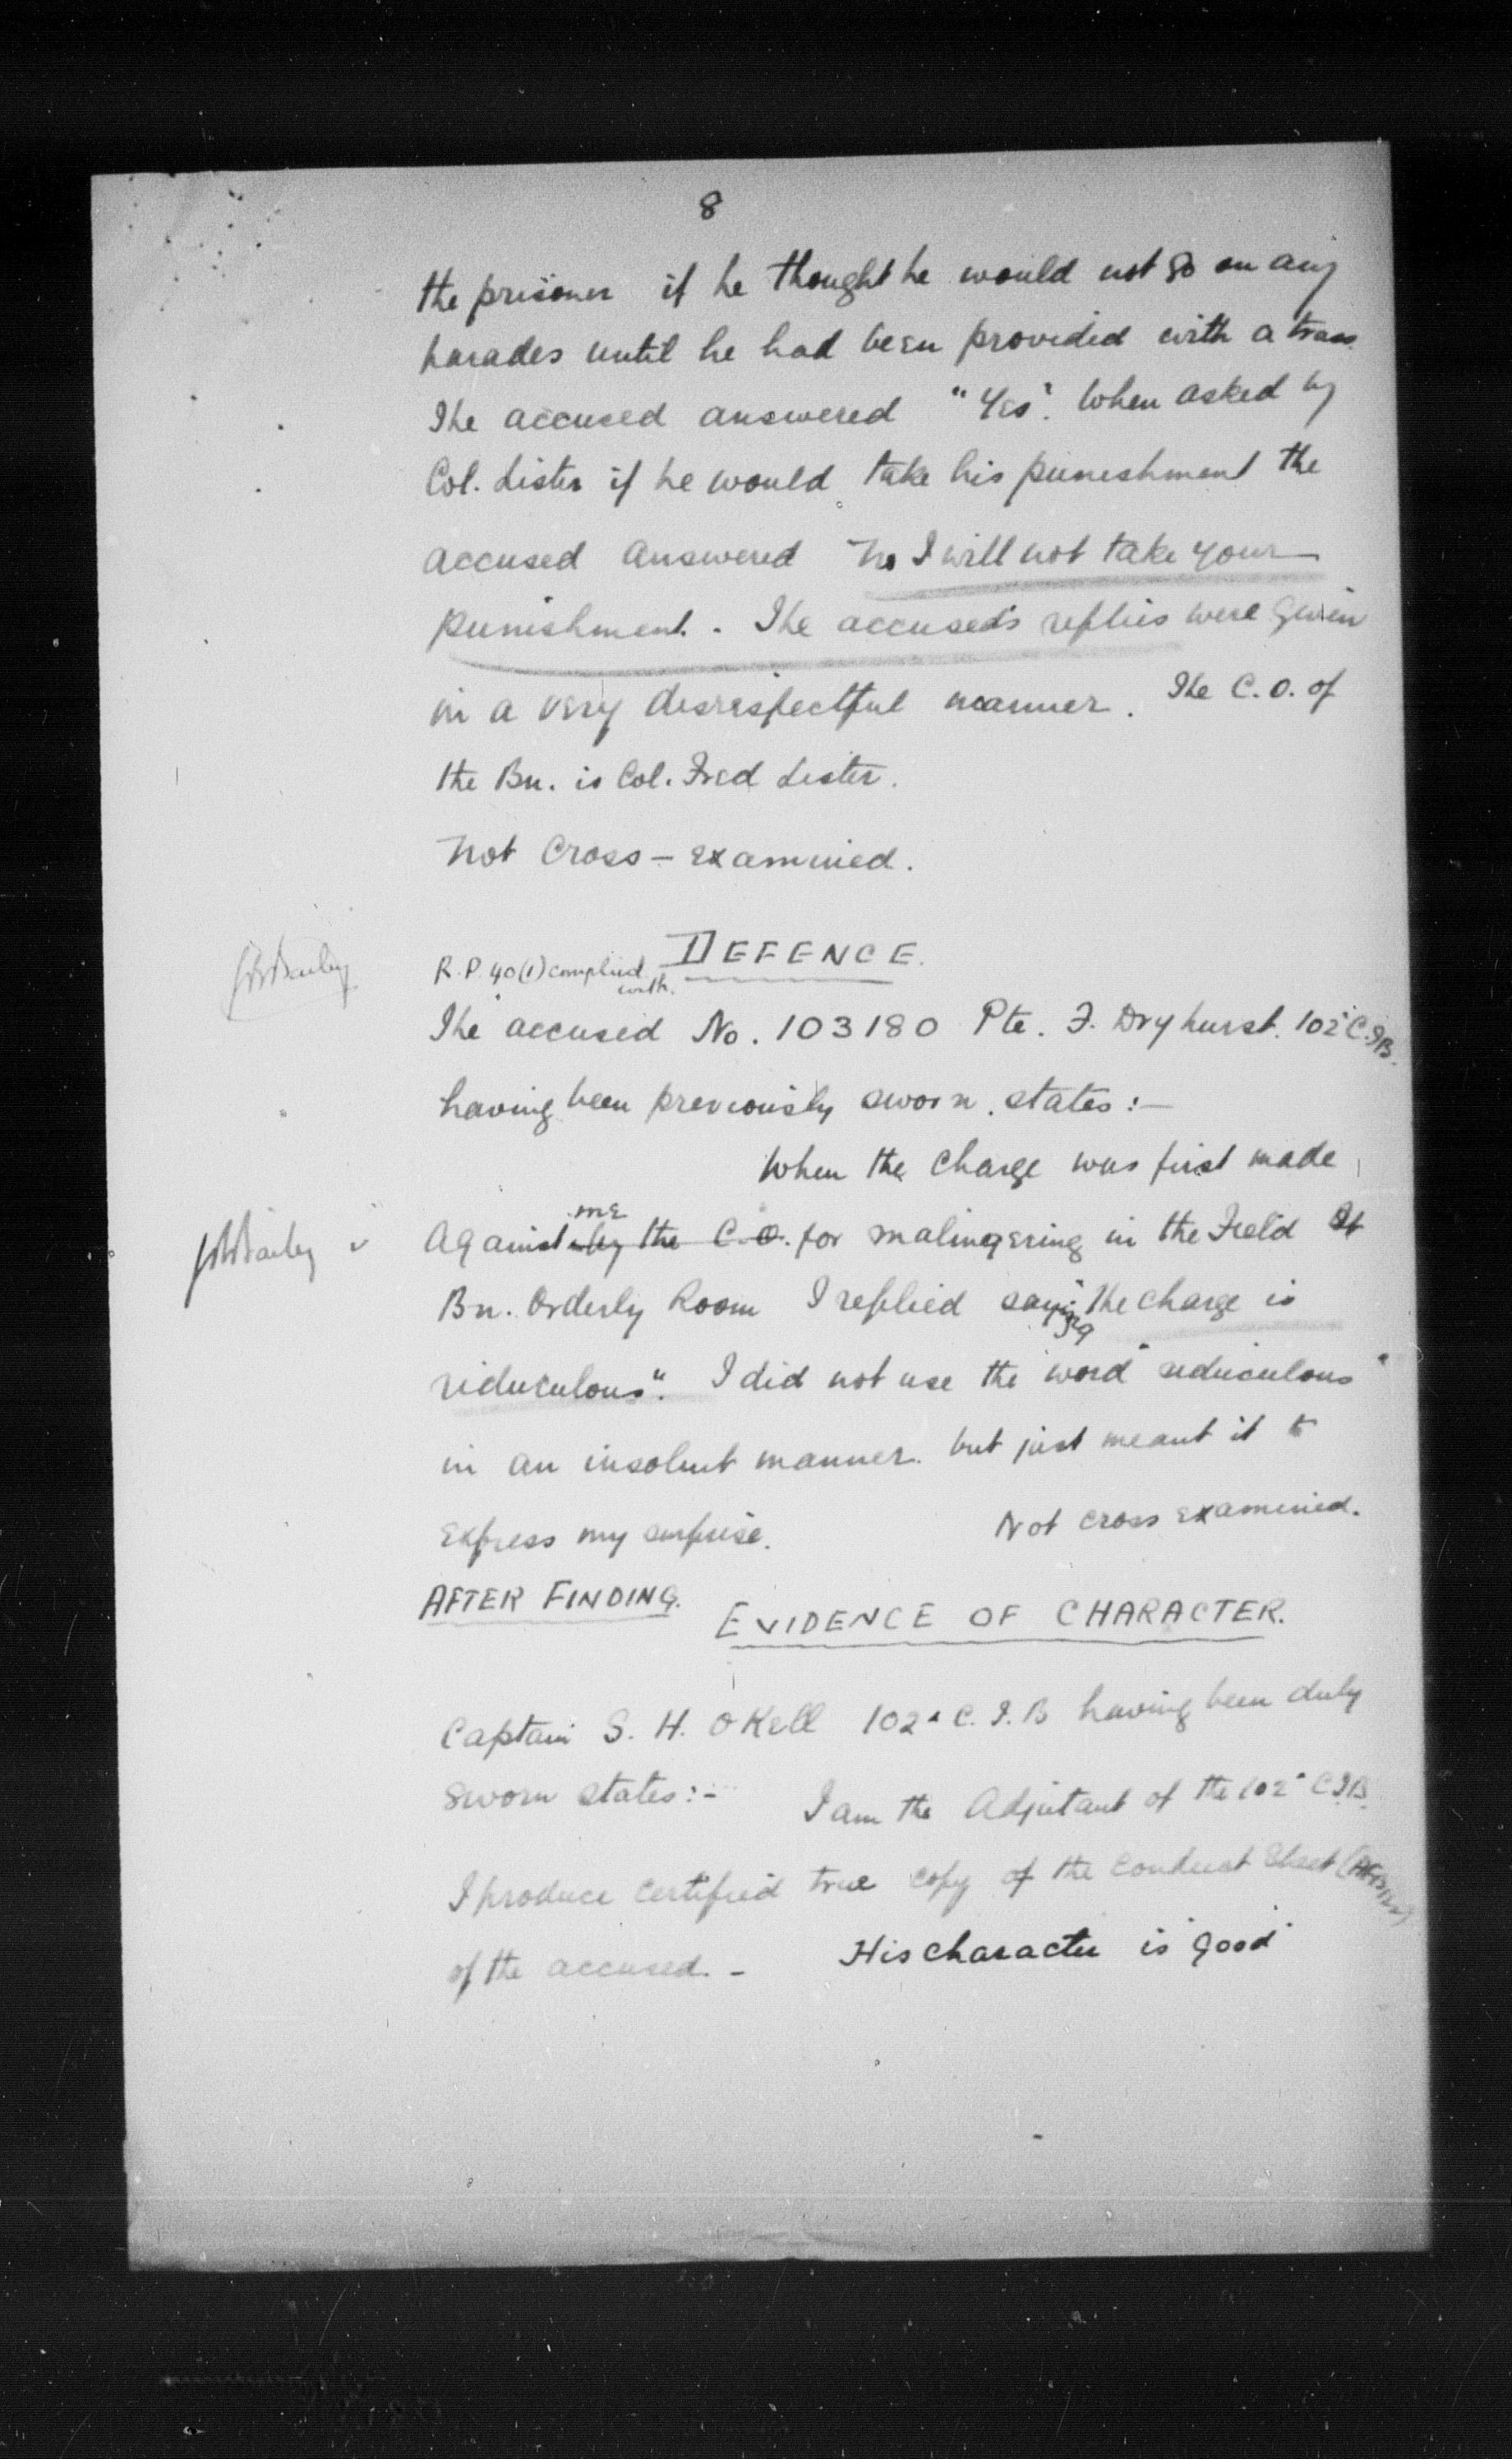 8
the prisoner if he thought he would not go on any
parades until he had been provided with a truss.
The accused answered "Yes". When asked by
Col. Lister if he would take his punishment the
accused answered No I will not take your
punishment. - The accused's replies were given
in a very disrespectful manner. The C.O. of
the Bn. is Col. Fred Lister.
Not Cross-examined.
DEFENCE.
R.P. 40(1) complied with.
The accused No. 103180 Pte. F. Dryhurst. 102d C.I.B.
having been previously sworn, states:-
When the charge was first made
against me by the C.O. for malingering in the Field At
Bn. Orderly Room I replied saying "the charge is
riduculous". I did not use the word "ridiculous"
in an insolent manner. but just meant it to
express my surprise. Not cross examined.
AFTER FINDING.
EVIDENCE OF CHARACTER.
Captain S. H. Okell 102d C.I.B having been duly
sworn states:- I am the Adjutant of the 102d C.I.B.
I produce certified true copy of the Conduct Sheet
of the accused. - His character is "good"